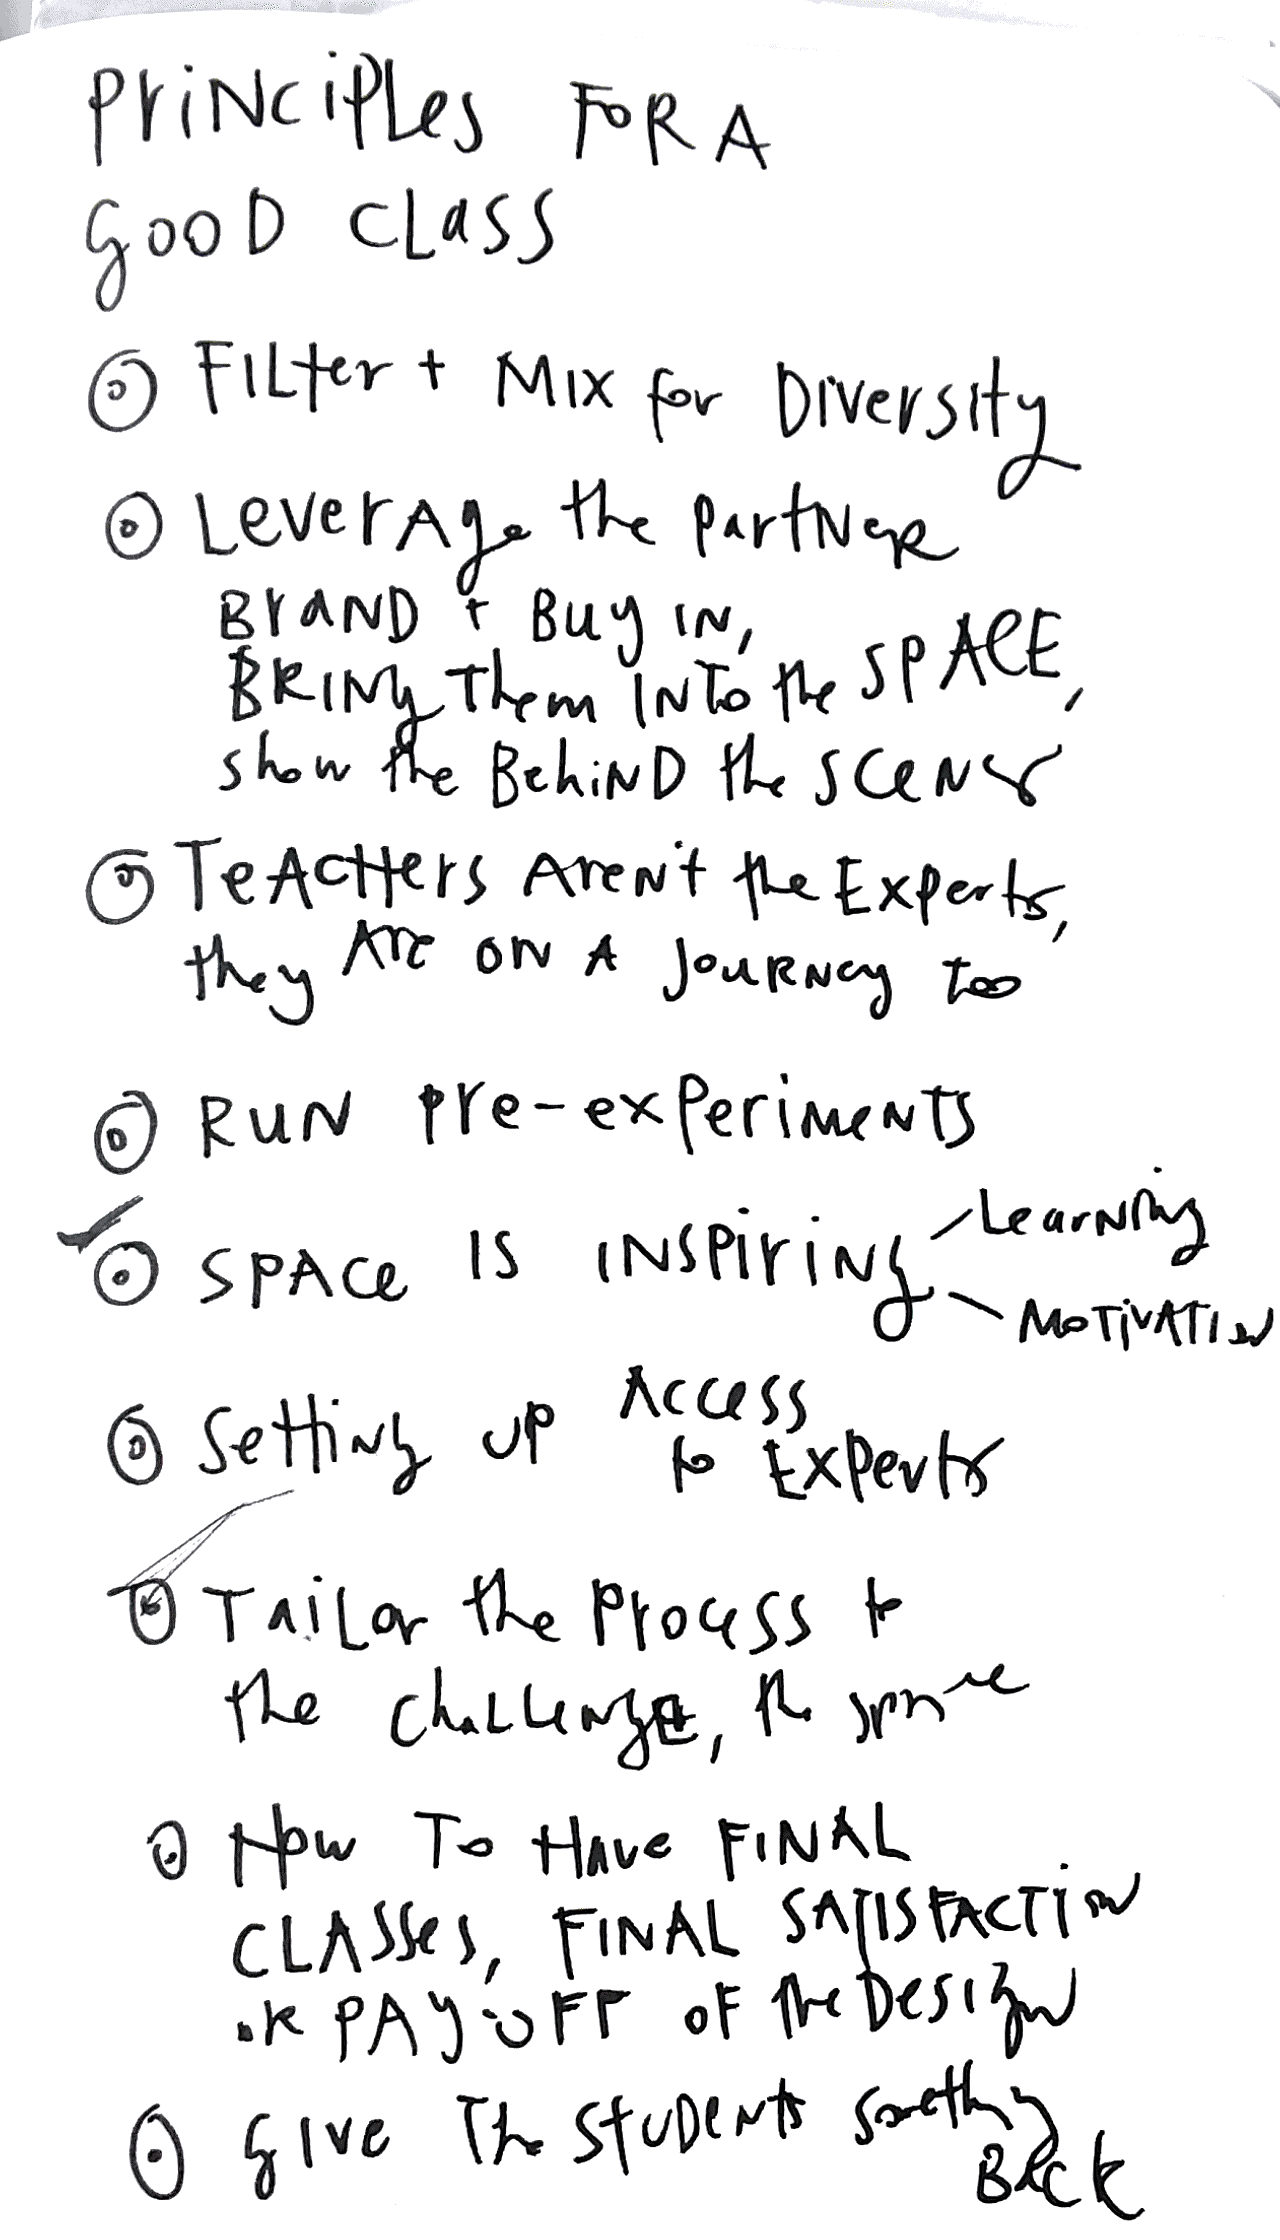 PriNciPLes FOR A
GOOD CLass
FILter + MIX for Diversity
LeverAge the PartNeR
BraND + Buy IN,
BRING them INTo the SPACE,
show the BehiND the SCeNes
TeACHers AreN't the Experts,
they Are ON A JouRNey Too
RUN Pre-exPeriMeNTS
SPACe IS INSPiriNg - LearNiNg
- MoTiVATIoN
SettiNg UP Access
to ExPerts
TaiLor the Process to
the chaLLeNge, the space
How To HAve FINAL
CLASSes, FINAL SATISFACTioN
oR PAY-OFF OF the DesigN
GIve The StuDeNts Something
BAck